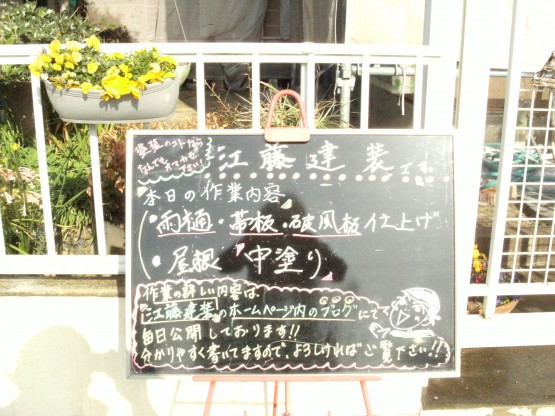 塗装のコトなら
なんでもおまかせ
下さい!
江藤建装です。
本日の作業内容
・雨樋・帯板・破風板仕上げ
・屋根 中塗り
作業の詳しい内容は
江藤建装のホームページ内のブログにて
毎日公開しております!!
分かりやすく書いてますので、よろしければご覧下さい!!